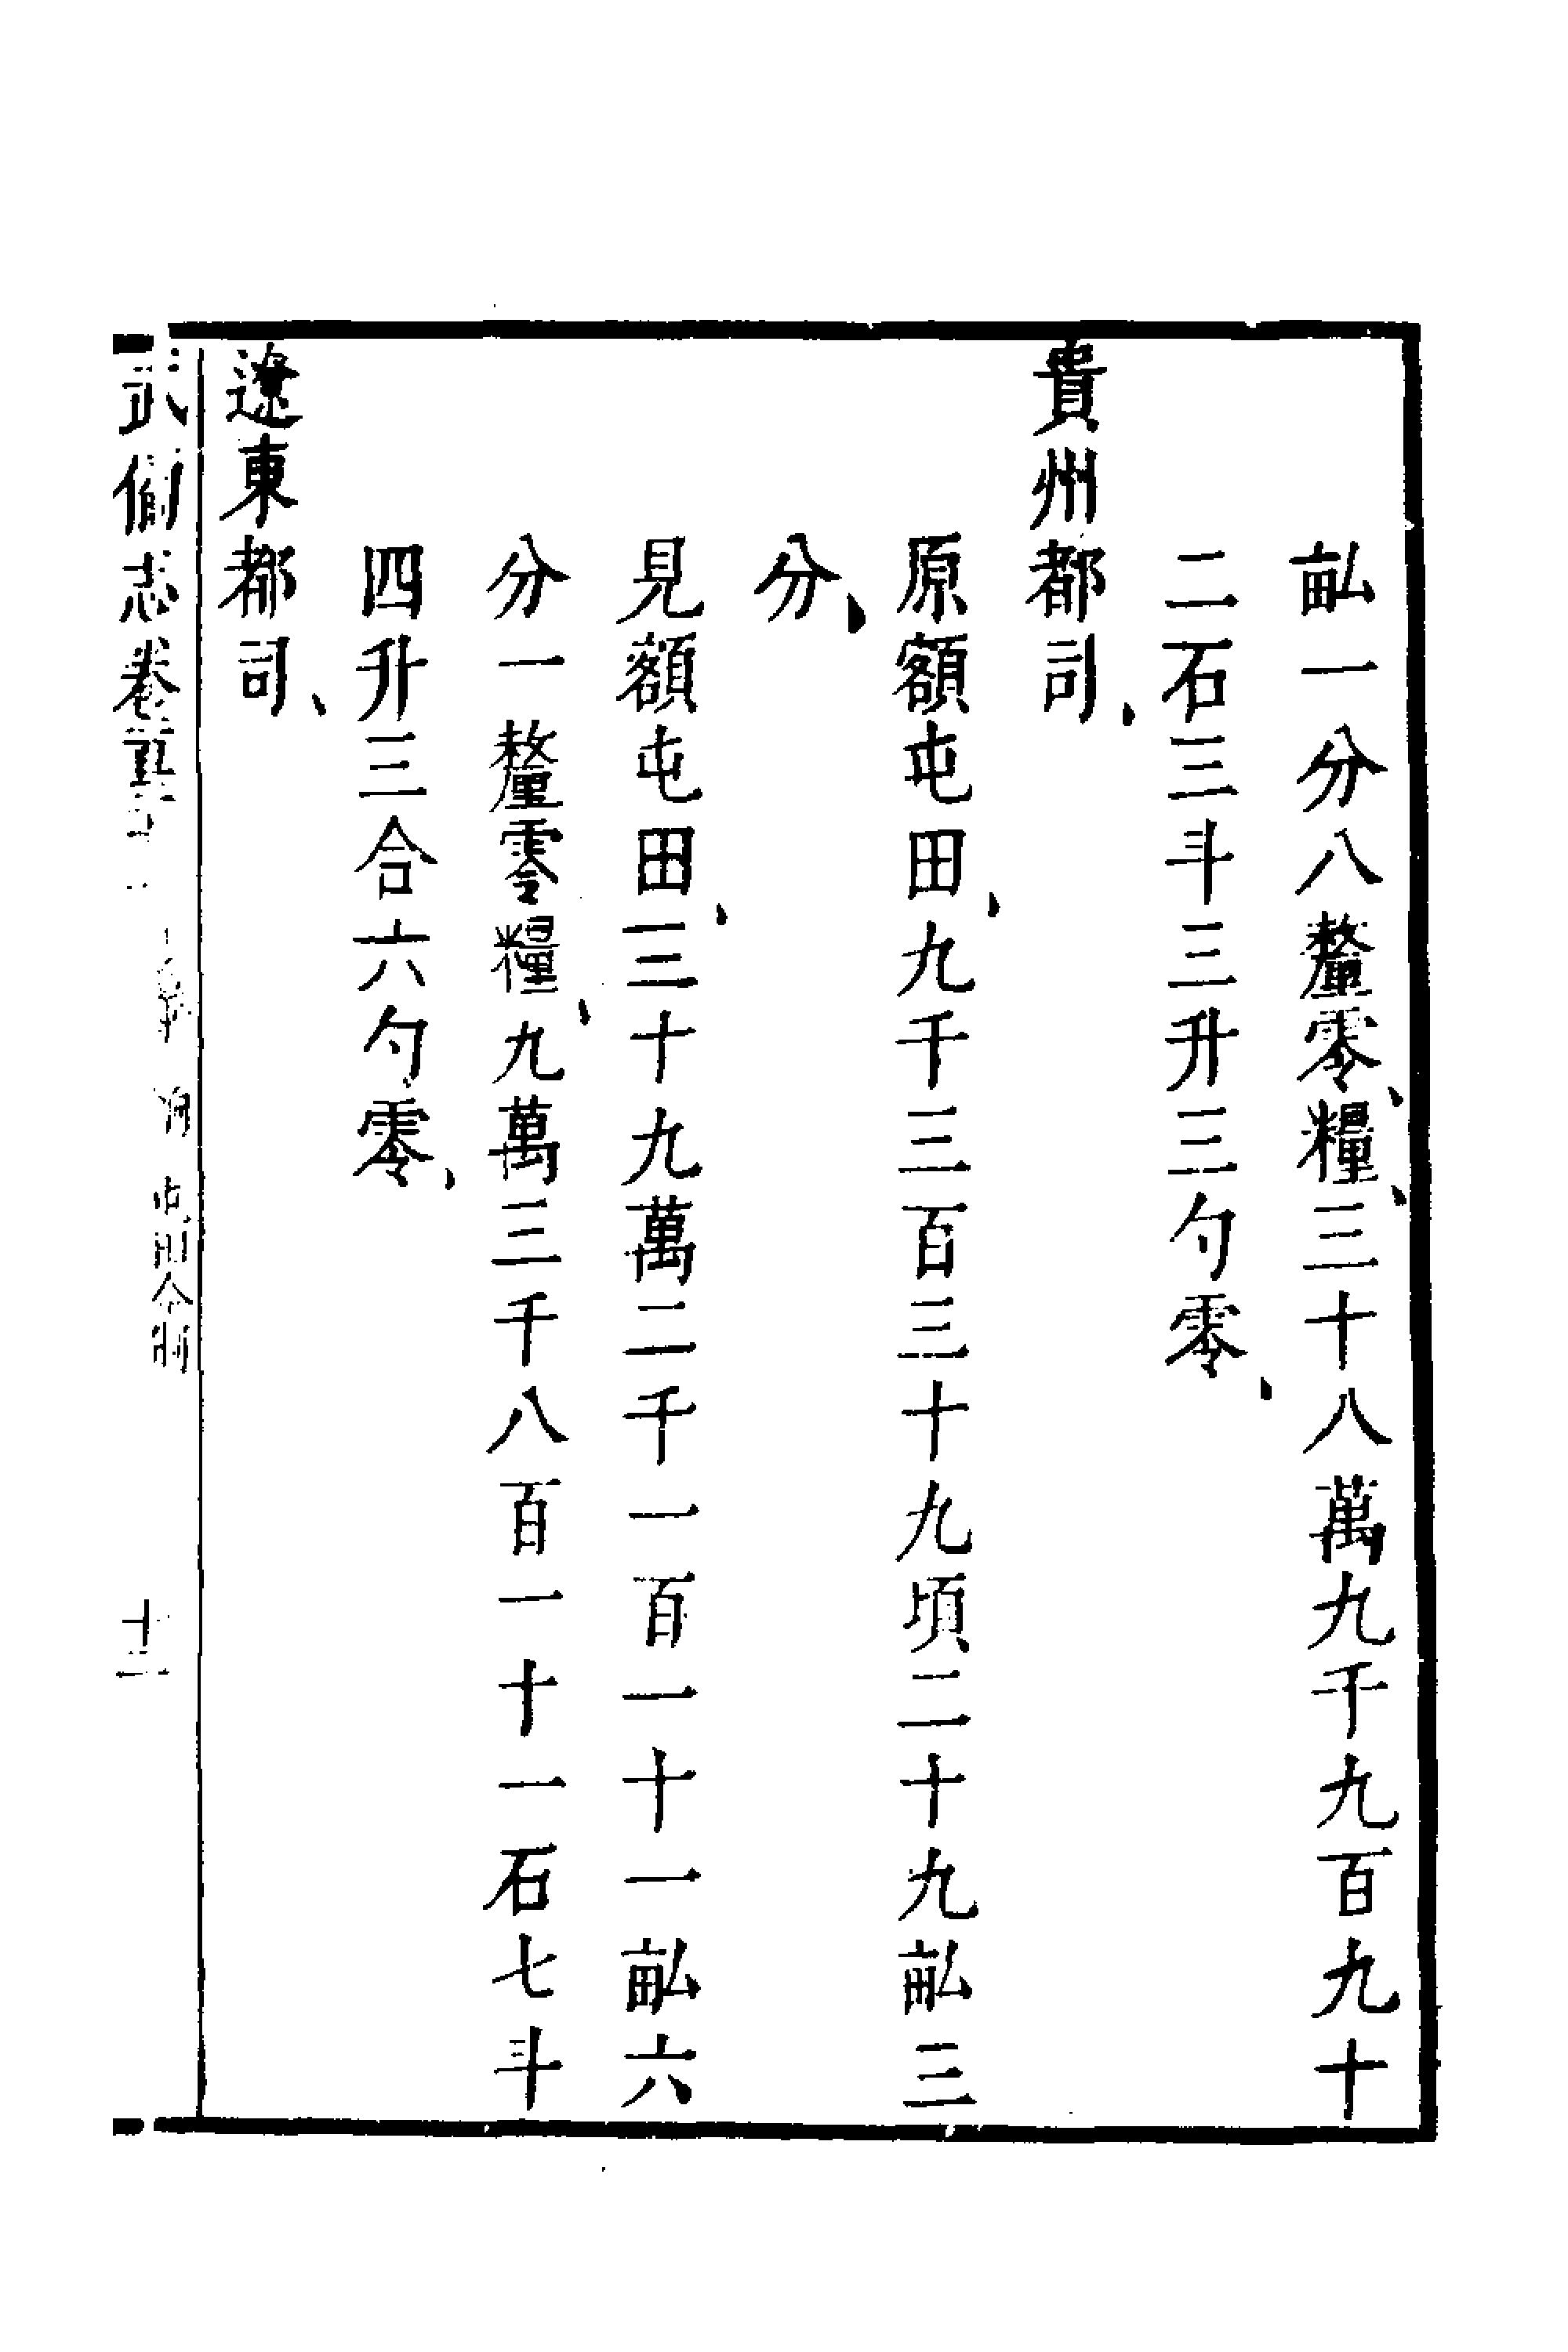 畝一分八釐零、糧、三十八萬九千九百九十
二石三斗三升三勺零、
貴州都司、
原額屯田、九千三百三十九頃二十九畝三
分、
見額屯田、三十九萬二千一百一十一畝六
分一釐零糧、九萬三千八百一十一石七斗
四升三合六勺零、
遼東都司、
武備志卷
屯田今制
十三